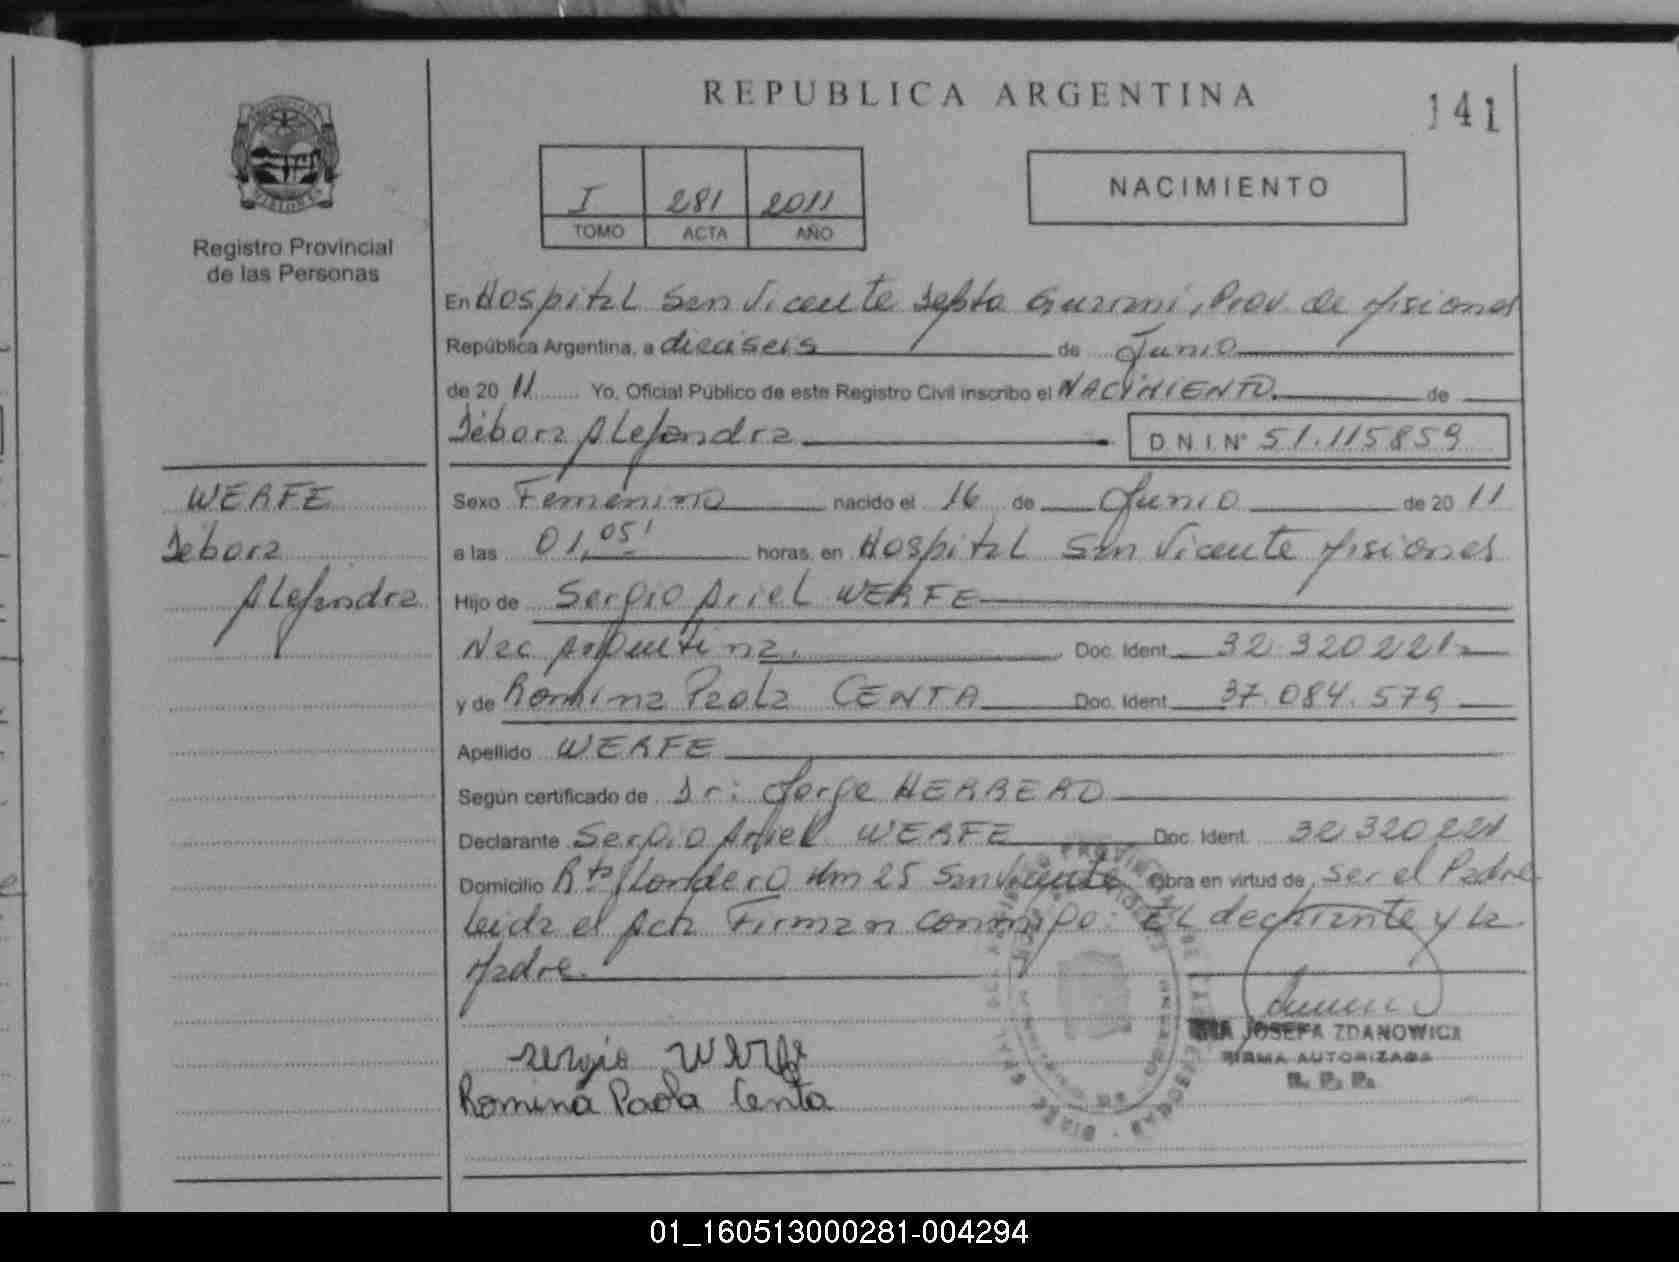 REPUBLICA ARGENTINA
141
I 281 2011
TOMO ACTA AÑO
NACIMIENTO
Registro Provincial
de las Personas
En Hospital San Vicente Depto Guarani, Prov. de Misiones
República Argentina, a dieciseis de Junio
de 20 11 Yo, Oficial Público de este Registro Civil inscribo el NACIMIENTO de
Débora Alejandra D.N.I.Nº 51.115859
WERFE
Débora
Alejandra
Sexo Femenino nacido el 16 de Junio de 20 11
a las 01,05' horas, en Hospital San Vicente Misiones
Hijo de Sergio Ariel WERFE
Nac Argentina. Doc. Ident. 32.320.221
y de Romina Paola CENTA Doc. Ident. 37.084.579
Apellido WERFE
Según certificado de Dr: Jorge HERRERO
Declarante Sergio Ariel WERFE Doc. Ident. 32.320.221
Domicilio Km 25 San Vicente Obra en virtud de ser el Padre
leida el Acta Firman conmigo: El declarante y la
Madre.
JOSEFA ZDANOWICZ
FIRMA AUTORIZADA
R. P. P.
Sergio Werfe
Romina Paola Centa
01_160513000281-004294